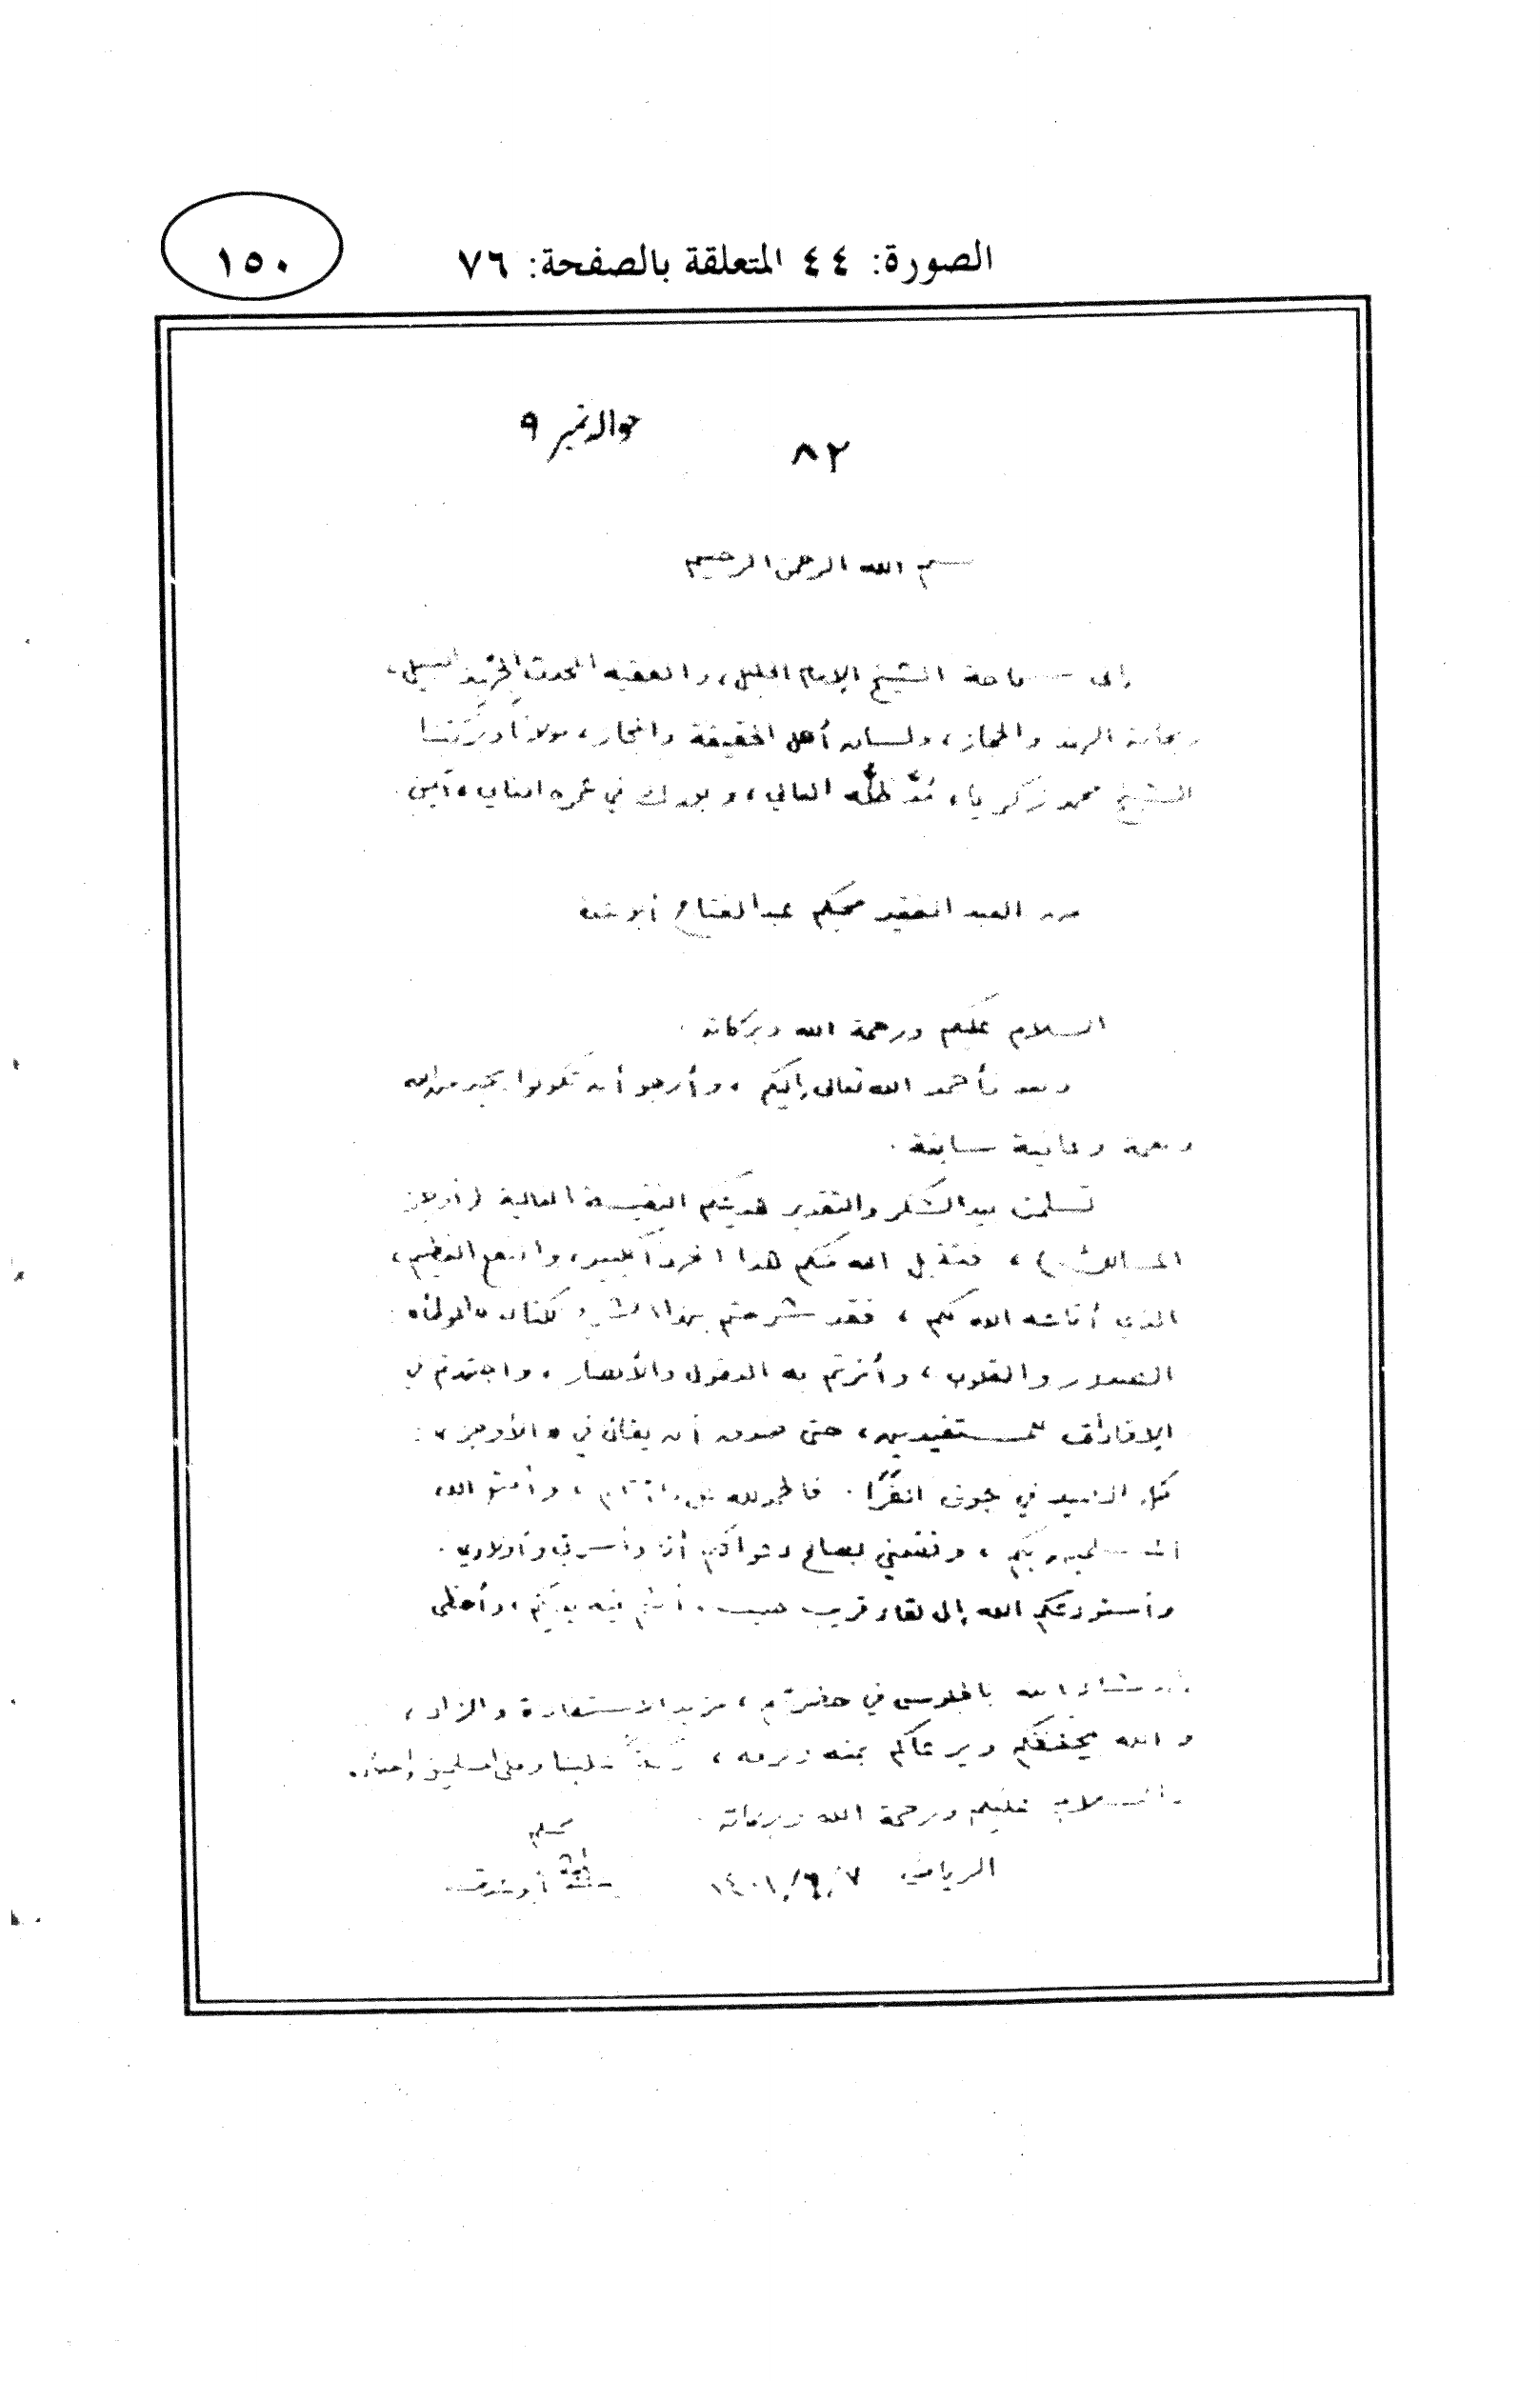 ١٥٠
الصورة: ٤٤ المتعلقة بالصفحة: ٧٦
حواله نمبر ٩
٨٢
بسم الله الرحمن الرحيم
إلى سماحة الشيخ الإمام الجليل، والفقيه المحدث النبيل،
ريحانة الهند والحجاز، ولسان أهل الحقيقة والمجاز، مولانا وبركتنا
الشيخ محمد زكريا، مُدَّ ظلُّه العالي، وبورك في عمره الغالي، آمين.
من العبد الفقير محبكم عبد الفتاح أبو غدة
السلام عليكم ورحمة الله وبركاته.
وبعد فأحمد الله تعالى إليكم، وأرجو أن تكونوا بخير من الله
ونعمة وعافية سابغة.
تسلمت بيد الشكر والتقدير هديتكم النفيسة الغالية (أوجز
المسالك)، فتقبل الله منكم هذا الخير الكبير، والنفع العظيم،
الذي أفاضه الله بكم، فقد شرحتم بهذا الشرح لكتاب «الموطأ»
الصدور والقلوب، وأنرتم به العقول والأبصار، واجتهدتم في
الإفادات للمستفيدين، حتى صدق أن يقال في «الأوجز»:
كل الصيد في جوف الفَرَا. فالحمد لله على ، وأمتع الله
المسلمين بكم، ونفعني بصالح دعواتكم أنا وأسرتي وأولادي.
وأستودعكم الله إلى لقاء قريب فيه ، وأحظى
إن شاء الله بالجلوس في حضرتكم، مزيد الاستفادة والزاد،
والله يحفظكم ويرعاكم بمنه وكرمه، علينا وعلى المسلمين
والسلام عليكم ورحمة الله وبركاته.
محبكم
الرياض ١٤٠١/٦/٧
عبد الفتاح أبو غدة